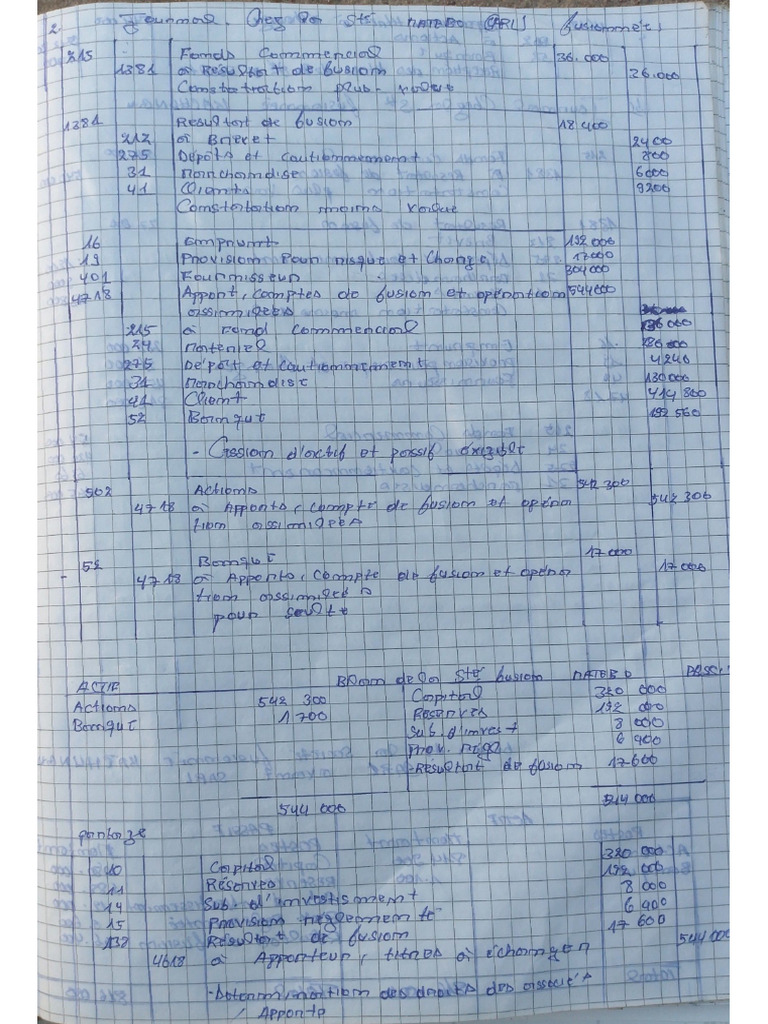 2. Journal. Chez la Sté MATEBO (SARL) fusionnée,
215 Fonds Commercial 36.000
1381 à Résultat de fusion 36.000
Constatation plus-value
1381 Resultat de fusion 18 400
212 à Brevet 2400
275 Dépôts et cautionnement 800
31 Marchandise 6000
41 Clients 9200
Constatation moins value
16 Emprunt 192 000
19 Provision Pour risque et Charge 17000
401 Fournisseur 304000
4718 Apport, comptes de fusion et opération 544000
assimilées
215 à Fond commercial 136 000
24 Materiel
275 Dépôt et cautionnement 4240
31 Marchandise 130 000
41 Client 414 800
52 Banque 192 560
- Cession d'actif et passif
502 Actions 542 300
4718 à Apports, compte de fusion et opéra 542 300
tion assimilées
- 52 Banque 17 000
4718 à Apports, compte de fusion et opéra 17 000
tion assimilées
pour soulte
Bilan de la Sté fusion MATEBO
ACTIF PASSIF
Actions 542 300 Capital 320 000
Banque 1 700 Reserves 192 000
Sub. d'invest 8 000
Prov. régl 6 400
Résultat de fusion 17 600
544 000 544 000
partage
10 Capital 320 000
11 Réserves 192 000
14 Sub. d'investissement 8 000
15 Provision réglementé 6 400
138 Résultat de fusion 17 600
4618 à Apporteur, titres à échanger 544 000
- Determination des droits des associés
/ Apports